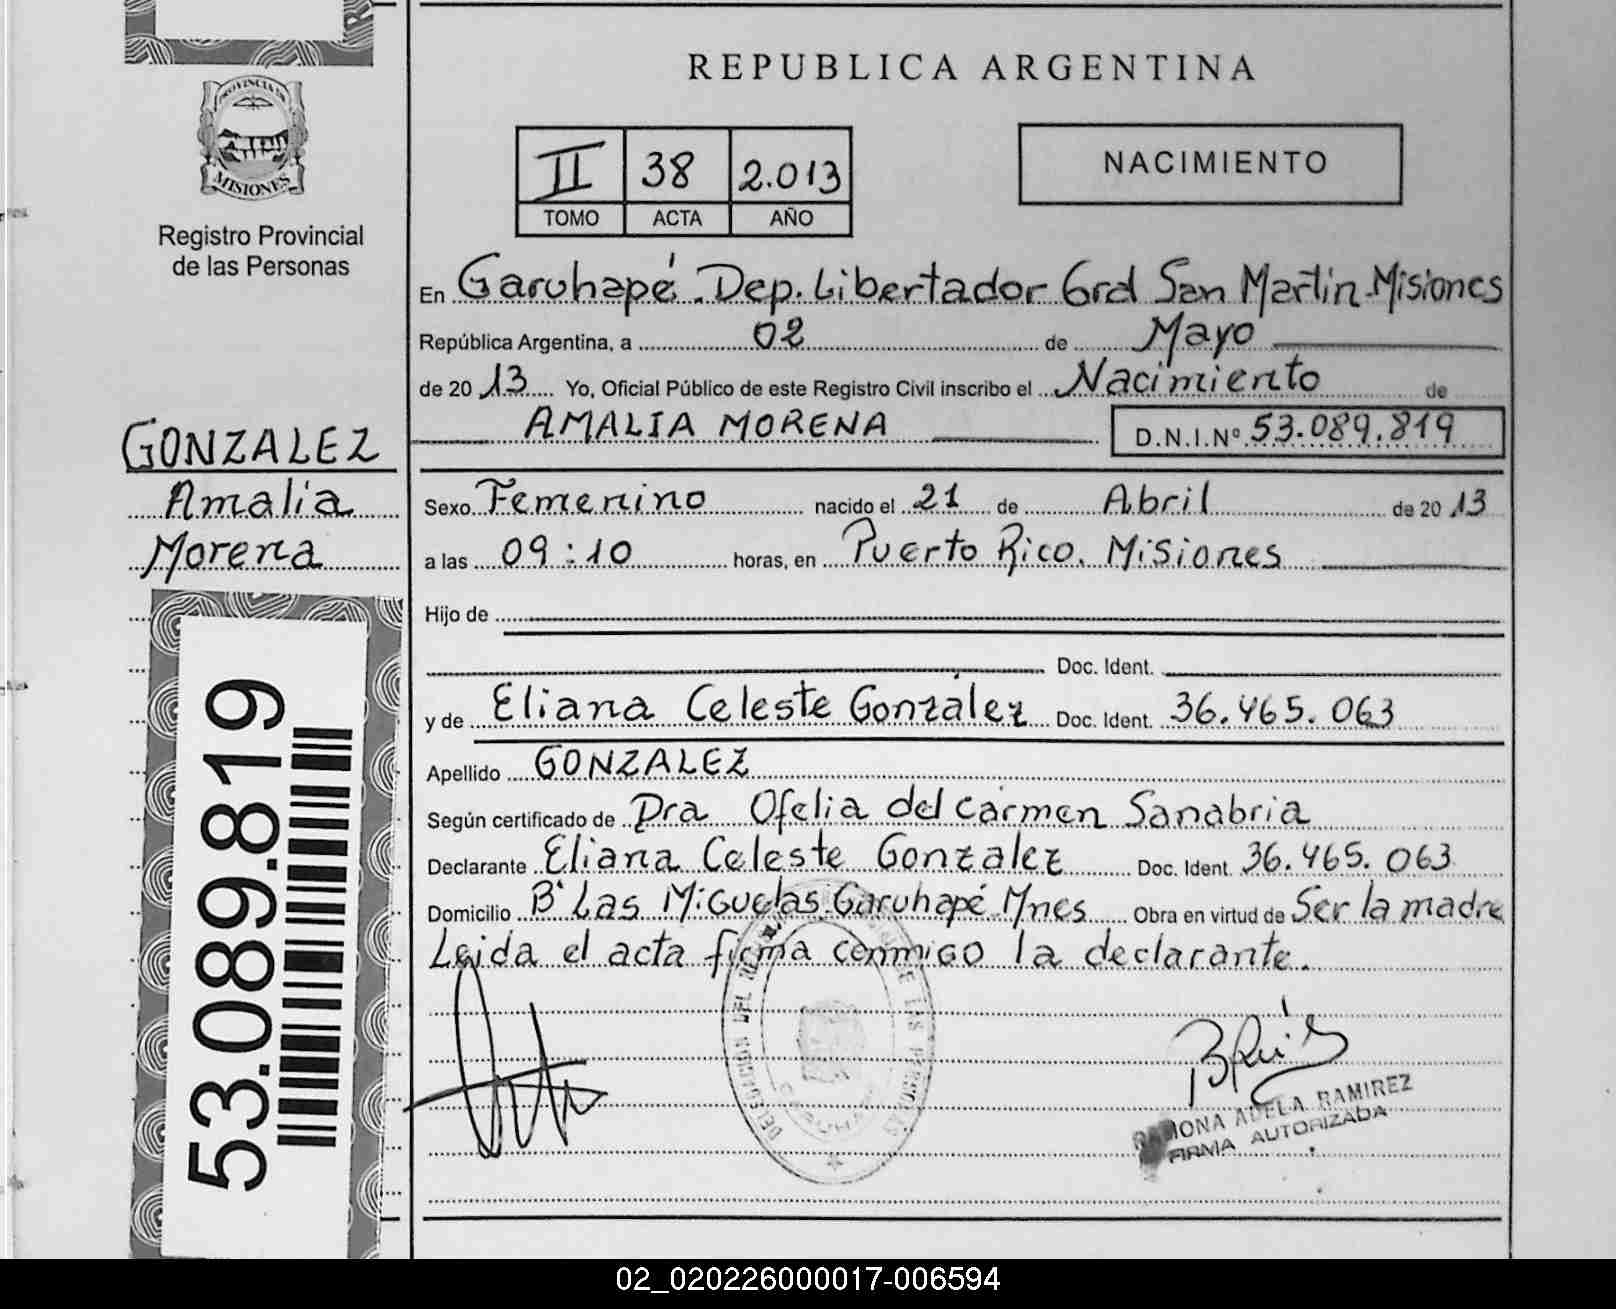 PROVINCIA DE
MISIONES
Registro Provincial
de las Personas
GONZALEZ
Amalia
Morena
53.089.819
REPUBLICA ARGENTINA
II 38 2.013
TOMO ACTA AÑO
NACIMIENTO
En Garuhapé. Dep. Libertador Gral San Martin-Misiones
República Argentina, a 02 de Mayo
de 2013 Yo, Oficial Público de este Registro Civil inscribo el Nacimiento de
AMALIA MORENA D.N.I.Nº 53.089.819
Sexo Femenino nacido el 21 de Abril de 2013
a las 09:10 horas, en Puerto Rico. Misiones
Hijo de
Doc. Ident.
y de Eliana Celeste González Doc. Ident. 36.465.063
Apellido GONZALEZ
Según certificado de Dra Ofelia del Carmen Sanabria
Declarante Eliana Celeste Gonzalez Doc. Ident. 36.465.063
Domicilio Bº Las Miguelas-Garuhapé-Mnes Obra en virtud de Ser la madre
Leida el acta firma conmigo la declarante.
RAMONA ADELA RAMIREZ
FIRMA AUTORIZADA
02_020226000017-006594